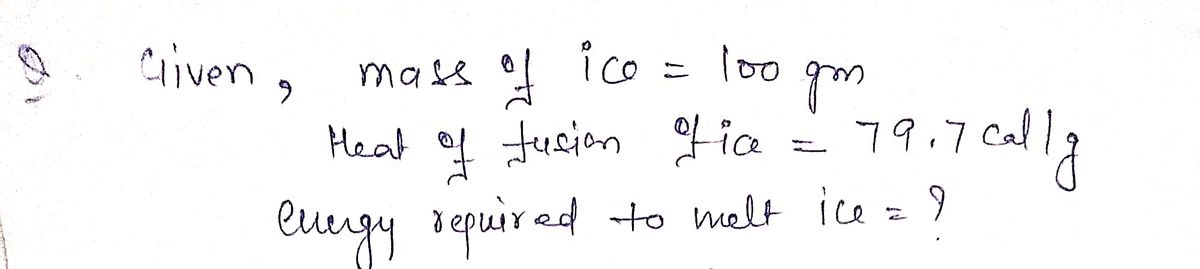 Q. Given, mass of ice = 100 gm
Heat of fusion of ice = 79.7 cal/g
energy required to melt ice = ?